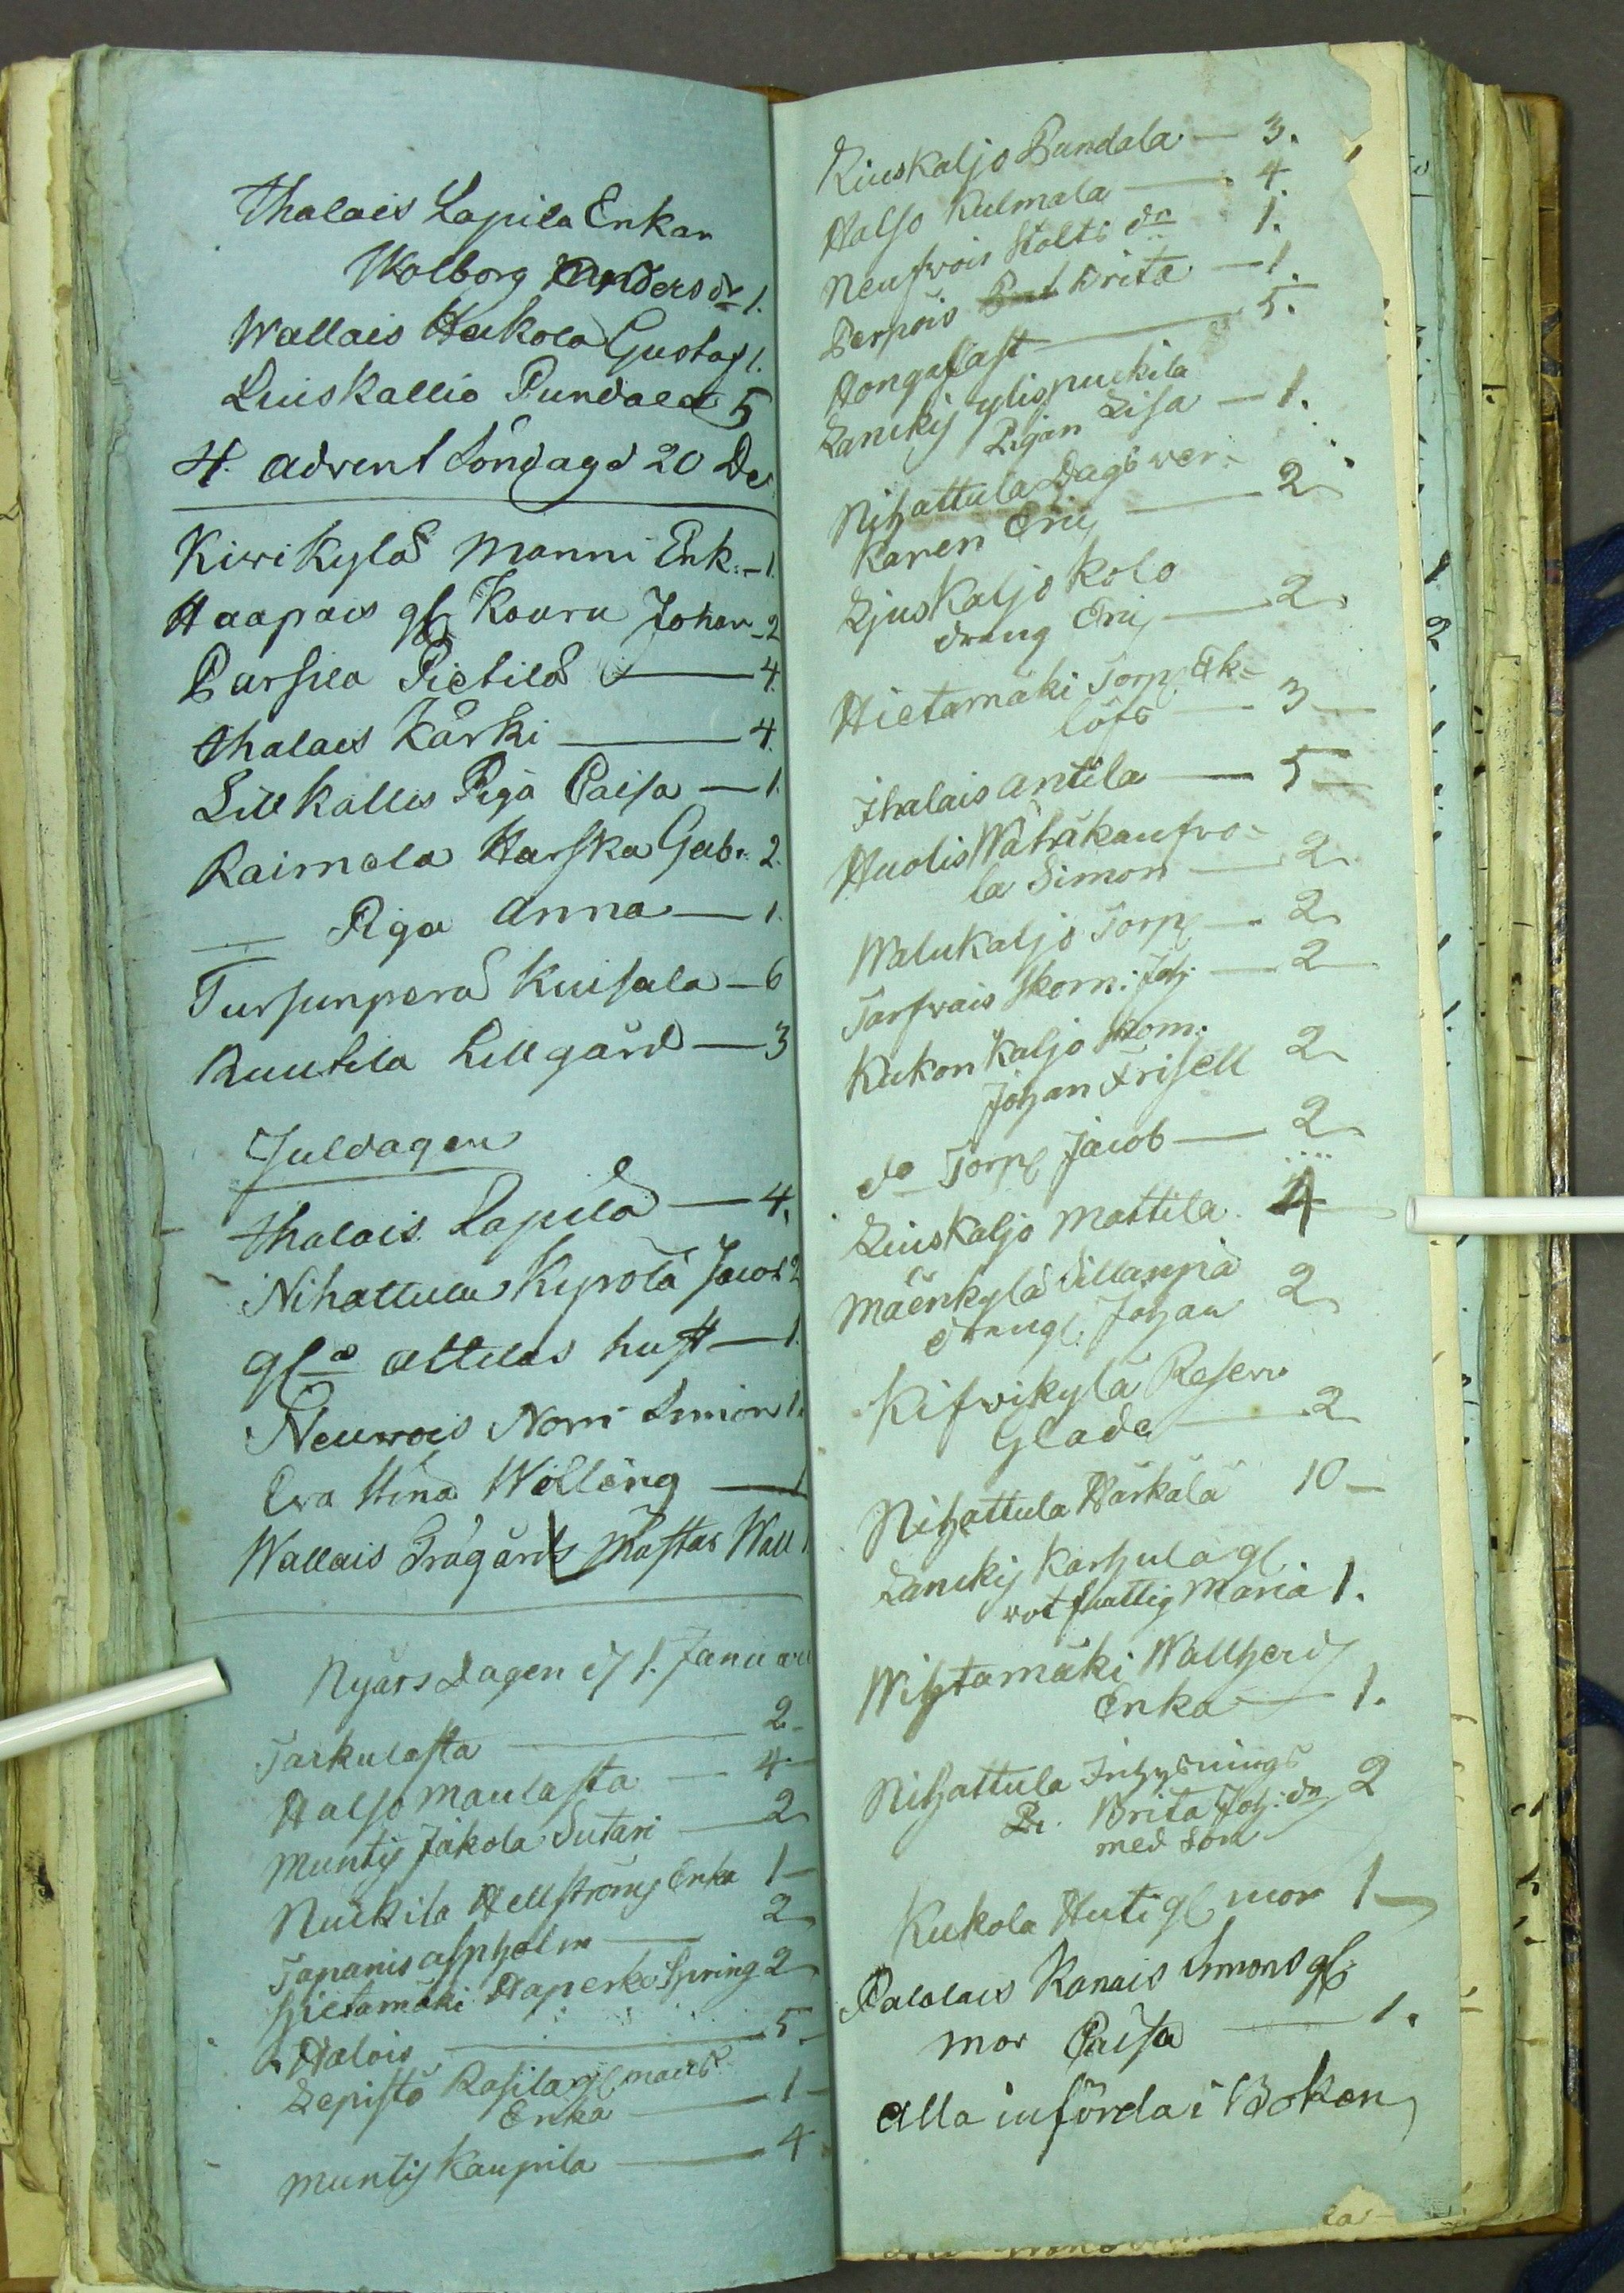 Ihalais Lapila Enkan
Walborg Andersdr 1.
Wallais Heikola Gustaf 1.
Liuskallio Pundala 5
4. Advent Söndagd 20 De
Kiwikylä Manni Enk. - 1.
Haapais gl Kouru Johan - 2
Parsila Pietilä - 4.
Ihalais Kärki - 4.
Lillkallis Piga Caisa - 1.
Raimela Harska Gab. 2.
Piga Anna - 1.
Tursunperä Kuisala - 6
Ruutila Lillgård - 3
Juldagen
Ihalais Lapila - 4.
Nihattula Kyrölä Jacob 2
gla Attilas hust - 1.
Neuwois Norri Simon 1.
Eva Stina Wölling - 1
Wallais Trägårds Mästar Wall 1
Nyårs Dagen d 1. Januari
Tarkulasta - 2 -
Halso Maulasta - 4 -
Muntij Jakola Sutari - 2
Nuckila Hellströms Enka 1 -
Tapanis Aspholm - 2
Hietamäki Haperko Spring 2
Halois - 5 -
Lepistö Rasila gl mans
Enka - 1 -
Muntij Kaupila - 4
Liuskaljo Pundala - 3.
Halso Kulmala - 4.
Neufvois Stolts dr 1.
Perpois Brita - 1.
Hongasast - 5.
Lanckij ylisnuckila
Pigan Lisa - 1.
Nihattula Dagsver-
karen Eric - 2
Ljuskaljo Kolo
dreng Eric - 2
Hietamäki Torp Ek-
löfs - 3 -
Ihalais Antila - 5 -
Huolis Wähäkaufvo-
la Simon - 2
Walukaljo Torp - 2
Tarfvais Skom: Joh. - 2
Kukonkaljo Skom:
Johan Frisell 2
do Torp Jacob - 2
Liuskaljo Mattila 4
Mäenkylä Sillanpä
drengl. Johan 2
Kifvikylä Reserv
Glada - 2
Nihattula Härkälä 10 -
Lanckij Karhula gl.
rotfhattig Maria 1.
Wihtamäki Wallherij
Enka - 1.
Nihattula Inhysnings
Pr. Brita Joh: dr 2
med Son
Kukola Huti gl mor 1 -
Palolais Kanais Simons gl:
mor Caisa - 1.
Alla införda i Boken